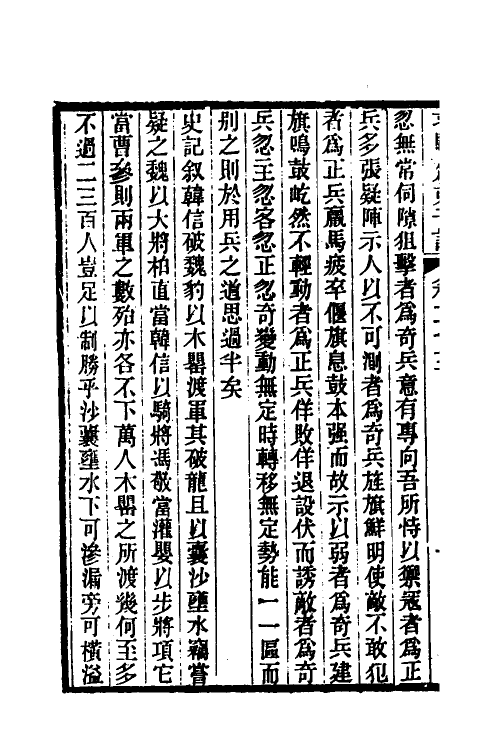 忽無常伺隙狙擊者爲奇兵意有專向吾所恃以禦寇者爲正
兵多張疑陣示人以不可測者爲奇兵旌旗鮮明使敵不敢犯
者爲正兵羸馬疲卒偃旗息鼓本强而故示以弱者爲奇兵建
旗鳴鼓屹然不輕動者爲正兵佯敗佯退設伏而誘敵者爲奇
兵忽主忽客忽正忽奇變動無定時轉移無定勢能一一區而
别之則於用兵之道思過半矣
史記叙韓信破魏豹以木罌渡軍其破龍且以囊沙壅水竊嘗
疑之魏以大將柏直當韓信以騎將馮敬當灌嬰以步將項它
當曹參則兩軍之數殆亦各不下萬人木罌之所渡幾何至多
不過二三百人豈足以制勝乎沙囊壅水下可滲漏旁可橫溢